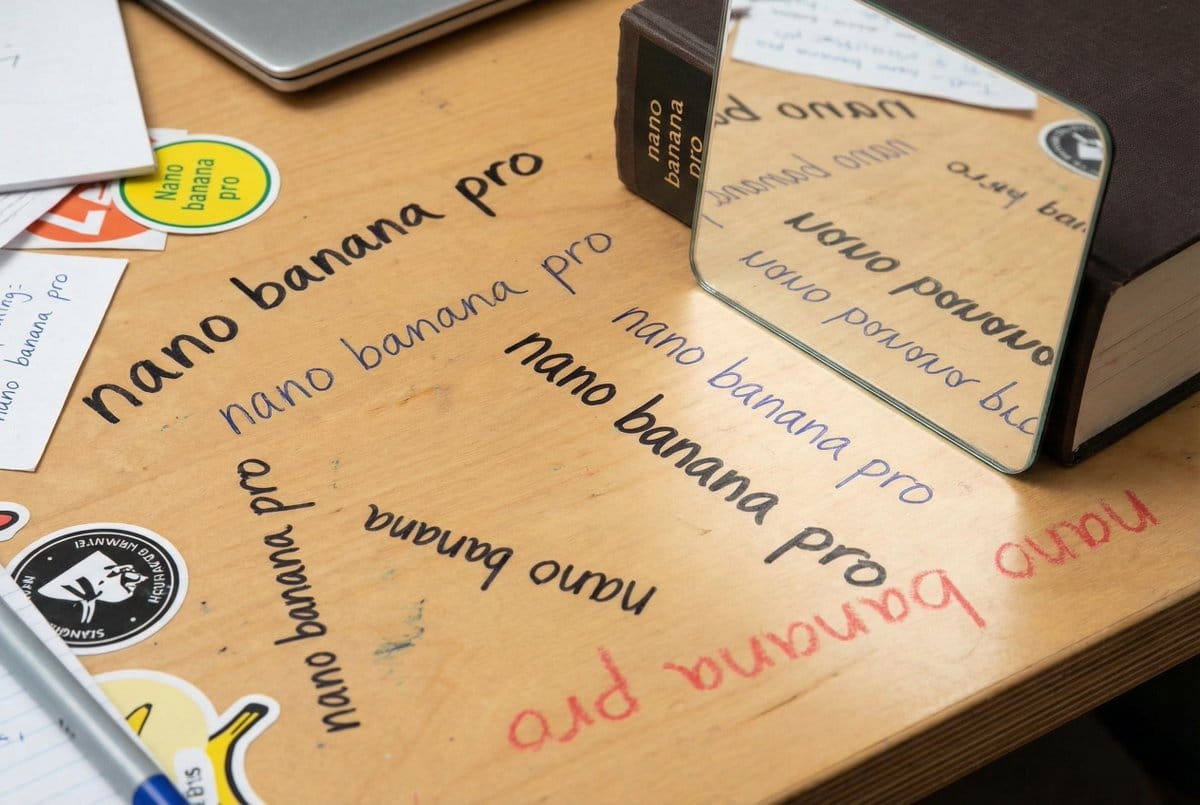 Nano
banana
pro
nano
banana
pro
nano banana pro
nano banana pro
nano banana pro
nano banana pro
nano banana pro
nano banana pro
nano banana
nano banana pro
nano
nano banana
pro
nano banana
nano banana